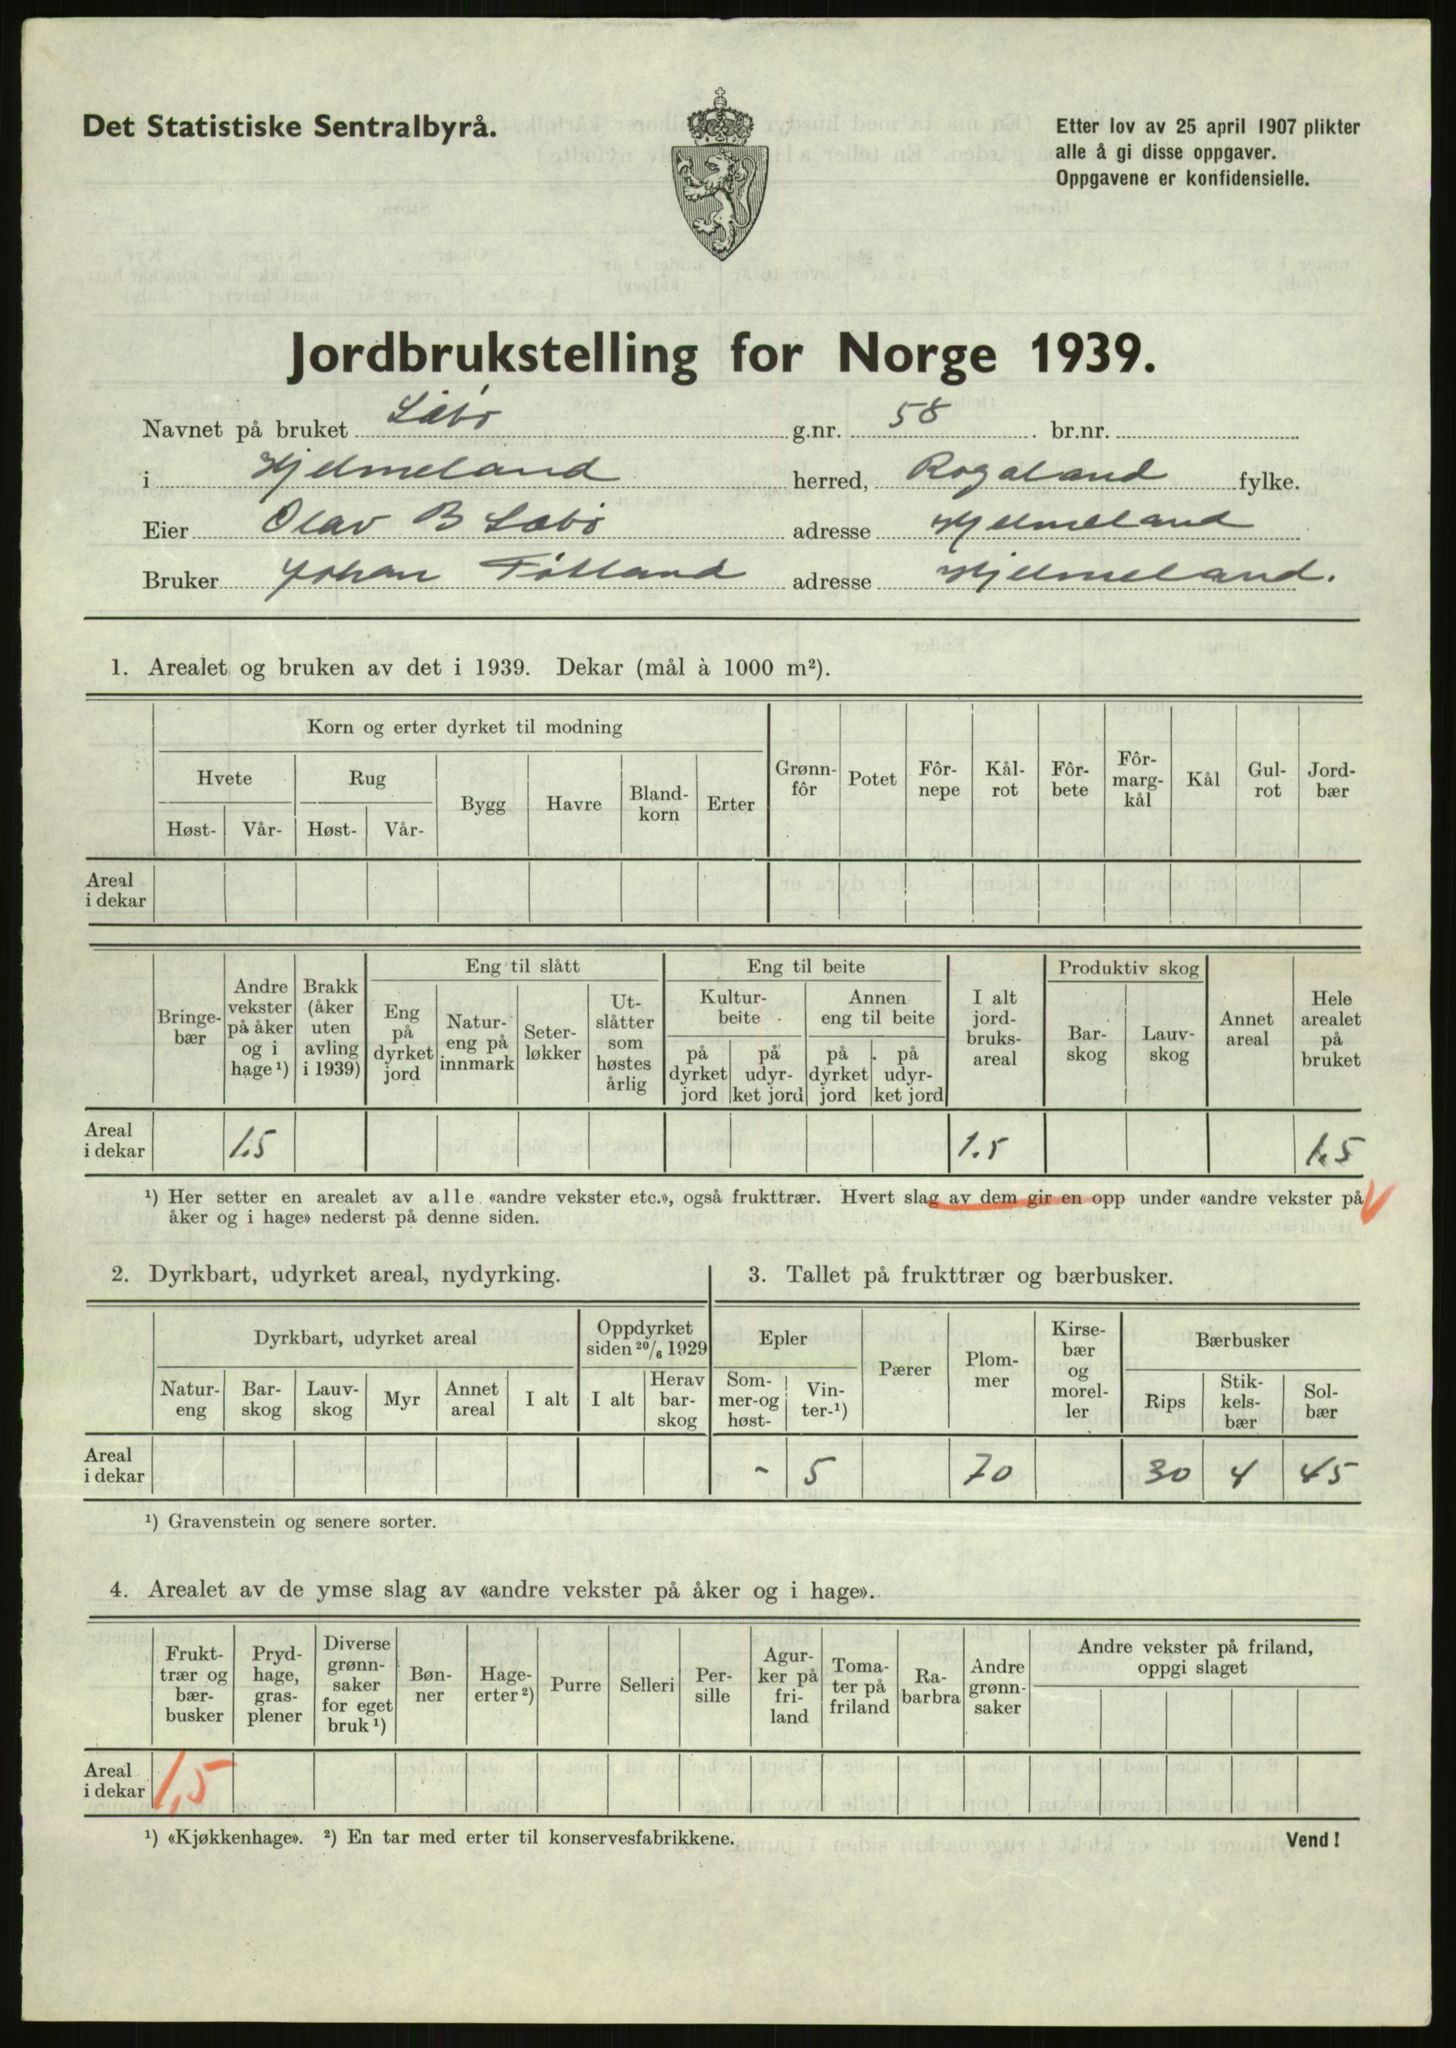 Det Statistiske Sentralbyrå.
Etter lov av 25 april 1907 plikter
alle å gi disse oppgaver.
Oppgavene er konfidensielle.
Jordbrukstelling for Norge 1939.
Navnet på bruket Sæbø g.nr. 58 br.nr.
i Hjelmeland herred, Rogaland fylke.
Eier Olav B Sæbø adresse Hjelmeland
Bruker Johan adresse Hjelmeland.
1. Arealet og bruken av det i 1939. Dekar (mål à 1000 m²).
Korn og erter dyrket til modning
Hvete Rug
Høst- Vår- Høst- Vår-
Bygg Havre Bland-korn Erter Grønn-fôr Potet Fôr-nepe Kål-rot Fôr-bete Fôr-marg-kål Kål Gul-rot Jord-bær
Areal
i dekar
Bringe-bær Andre vekster på åker og i hage¹) Brakk (åker uten avling i 1939)
Eng til slått
Eng på dyrket jord Natur-eng på innmark Seter-løkker Ut-slåtter som høstes årlig
Eng til beite
Kultur-beite Annen eng til beite
på dyrket jord på udyr-ket jord på dyrket jord på udyr-ket jord
I alt jord-bruks-areal
Produktiv skog
Bar-skog Lauv-skog
Annet areal Hele arealet på bruket
Areal
i dekar 1.5 1.5 1.5
¹) Her setter en arealet av alle «andre vekster etc.», også frukttrær. Hvert slag av dem gir en opp under «andre vekster på
åker og i hage» nederst på denne siden.
2. Dyrkbart, udyrket areal, nydyrking.
Dyrkbart, udyrket areal
Oppdyrket siden 20/6 1929
Natur-eng Bar-skog Lauv-skog Myr Annet areal I alt I alt Herav bar-skog
3. Tallet på frukttrær og bærbusker.
Epler
Som-mer-og høst- Vin-ter-¹)
Pærer Plom-mer Kirse-bær og morel-ler
Bærbusker
Rips Stik-kels-bær Sol-bær
Areal
i dekar - 5 70 30 4 45
¹) Gravenstein og senere sorter.
4. Arealet av de ymse slag av «andre vekster på åker og i hage».
Frukt-trær og bær-busker Pryd-hage, gras-plener Diverse grønn-saker for eget bruk¹) Bøn-ner Hage-erter²) Purre Selleri Per-sille Agur-ker på fri-land Toma-ter på friland Ra-barbra Andre grønn-saker
Andre vekster på friland, oppgi slaget
Areal
i dekar 1,5
¹) «Kjøkkenhage». ²) En tar med erter til konservesfabrikkene.
Vend!